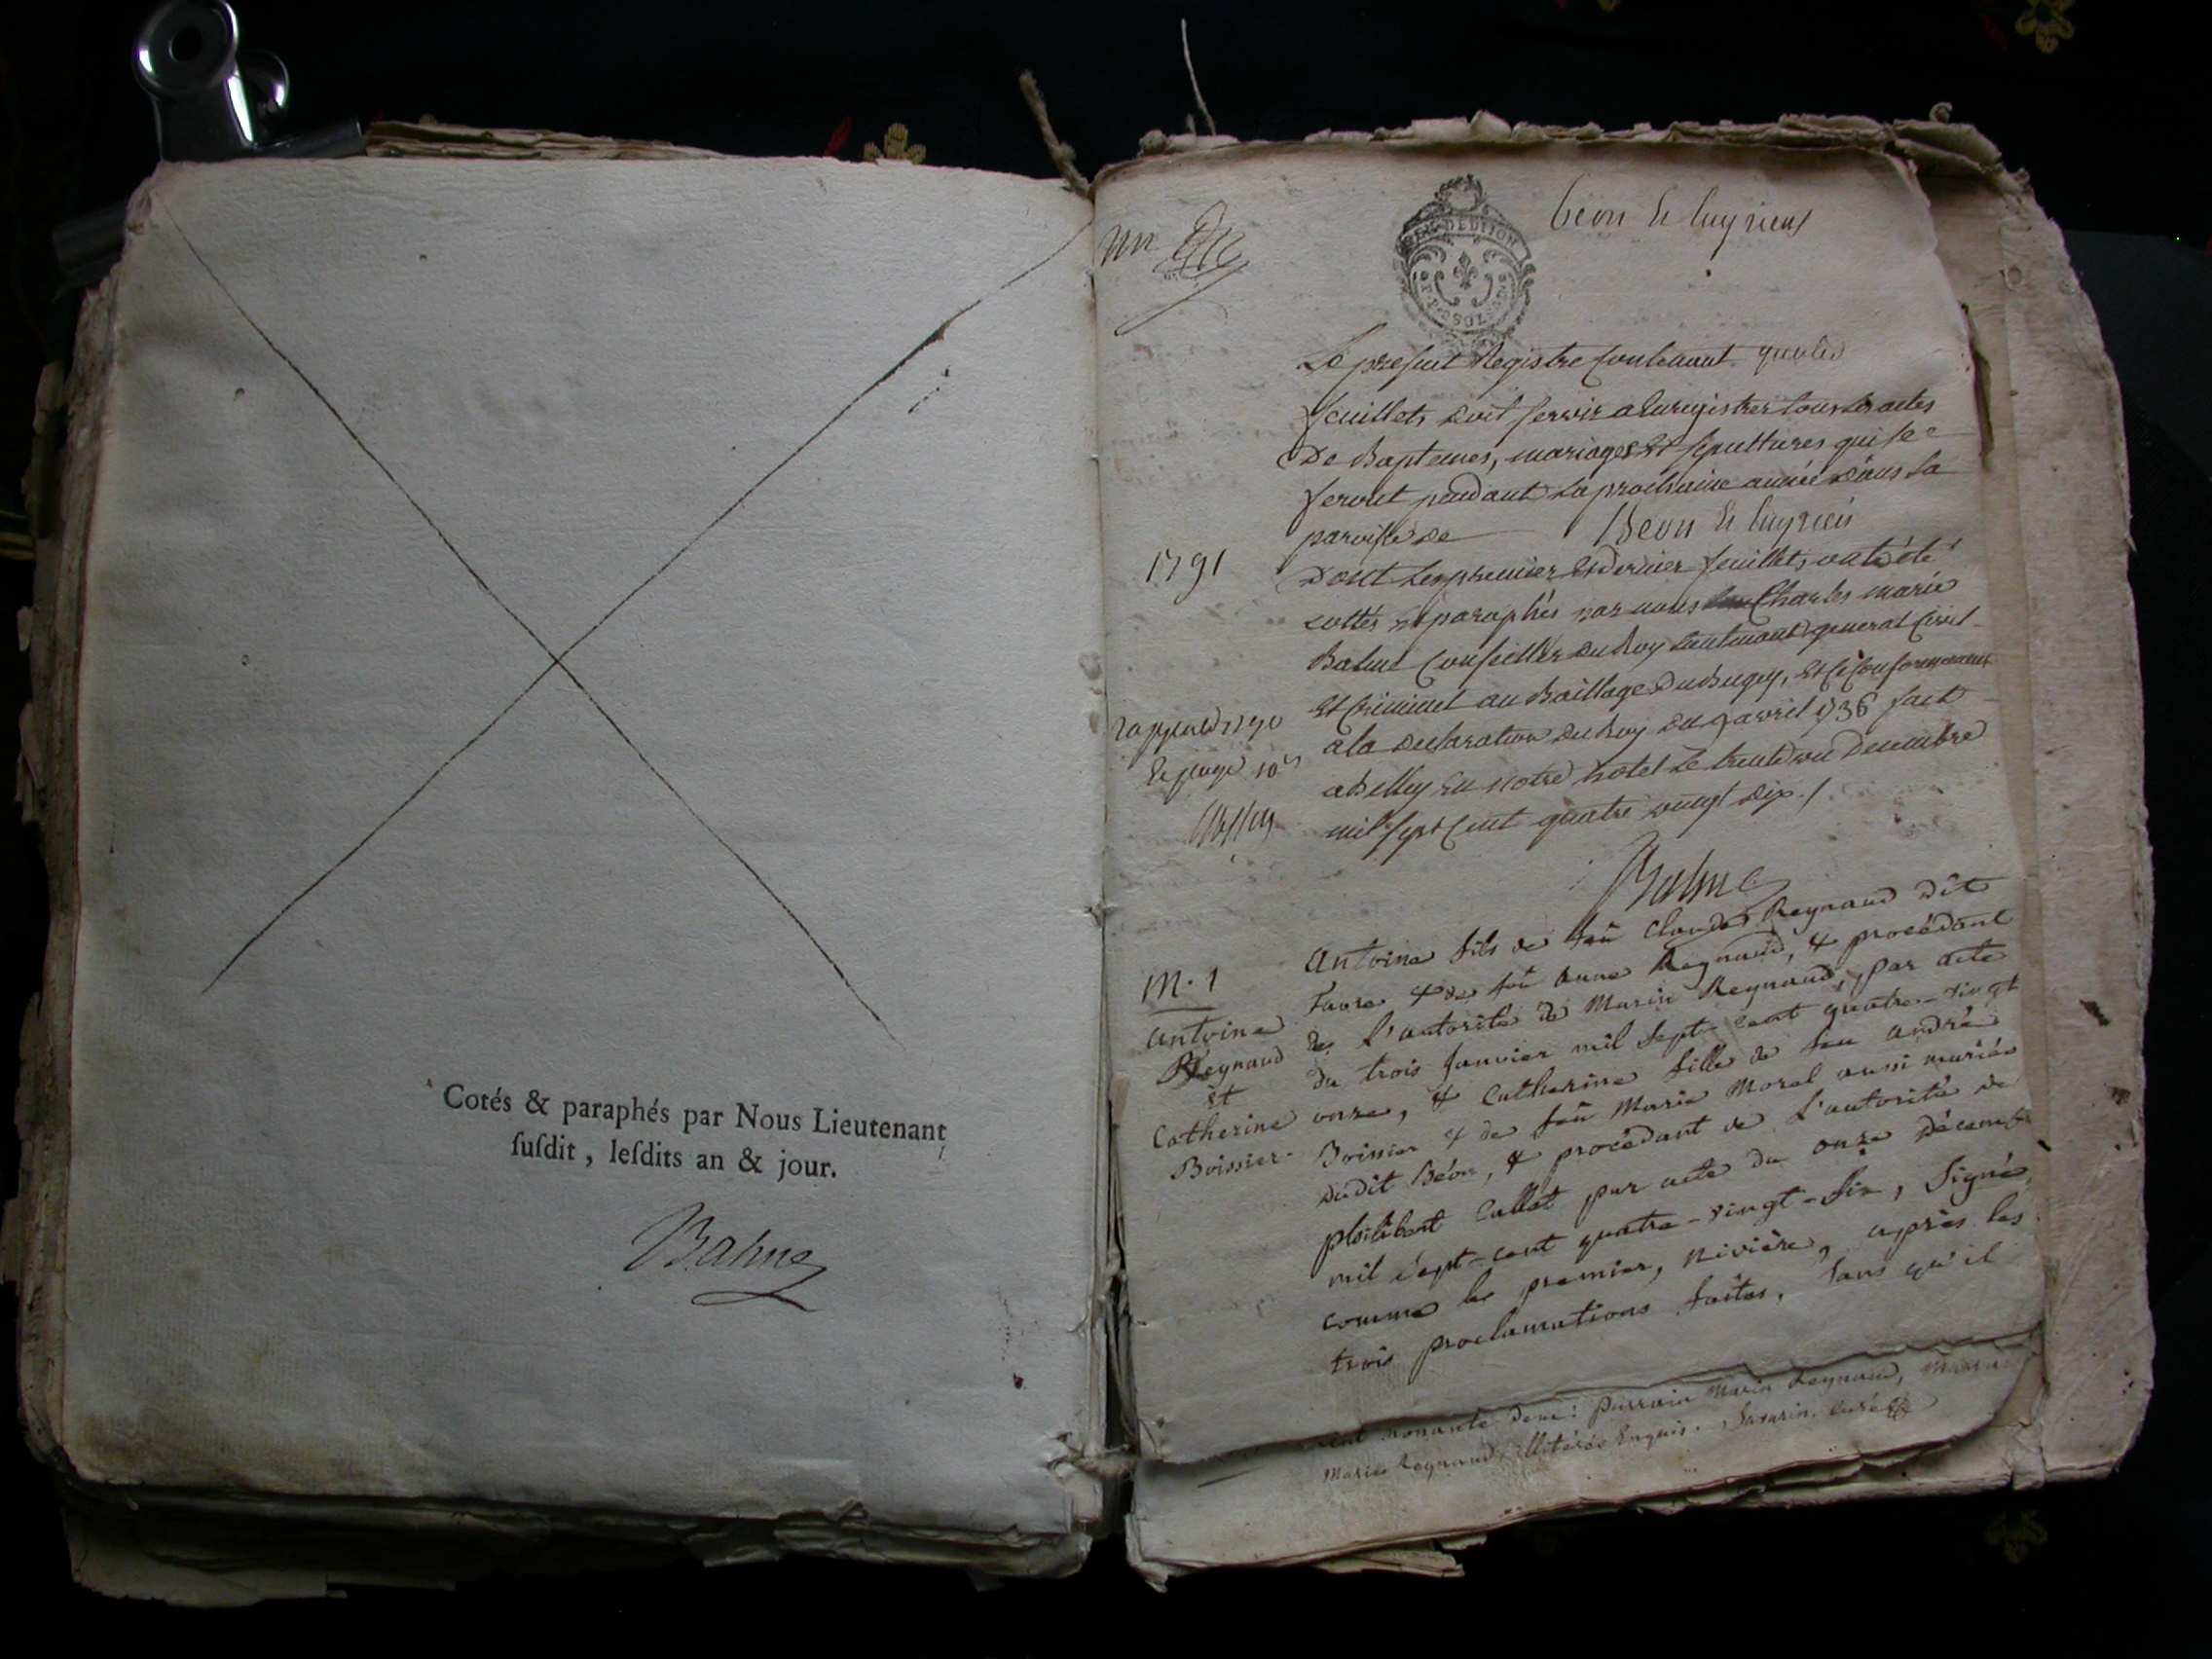 Cotés & paraphés par Nous Lieutenant
ſuſdit, leſdits an & jour.
Balme
un
Béon & Luyrieux
Le present Registre contenant
feuillets doit servir a Enregistrer tous les actes
De Baptemes, mariages Et sepultures qui se
feront pendant la prochaine année dans la
paroisse de Béon & Luyrieu
1791
Dont les premier Et dernier feuillets ont été
cottés & paraphés par nous Charles marie
Balme Conseiller du Roy Lieutenant general Civil
Et Criminel au Baillage du Bugey, Et ce conformement
a la declaration du Roy du 9 avril 1736 fait
a Belley En notre hotel Le trente un Decembre
mil sept Cent quatre vingt dix ./
Balme
M. 1
Antoine
Reynaud
Et
Catherine
Boissier
Antoine fils de feû Claude Reynaud dit
Favre & de feû Anne Reynaud, & procédant
de L'autorité de Marin Reynaud, par acte
du trois Janvier mil sept cent quatre-vingt
onze, & Catherine fille de feu andré
Boissier & de feû Marie Morel aussi mariés
dudit Béon, & procédant de L'autorité de
philibert Callet par acte du onze décembre
mil sept-cent quatre-vingt-six, Signé
comme le premier, Rivière, après les
trois proclamations faites, Sans qu'il
cent nonante deux: parrain Marin Reynaud,
Marie Reynaud illitérés Enquis. Savarin Curé